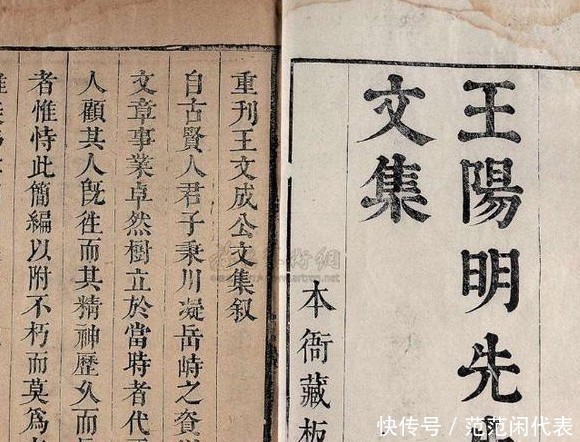 王陽明先
文集
本衙藏板
重刊王文成公文集叙
自古賢人君子秉川凝岳峙之資
文章事業卓然樹立於當時者代
人顧其人旣徃而其精神歷久而
者惟恃此簡編以附不朽而莫爲
快传号 / 范范闲代表